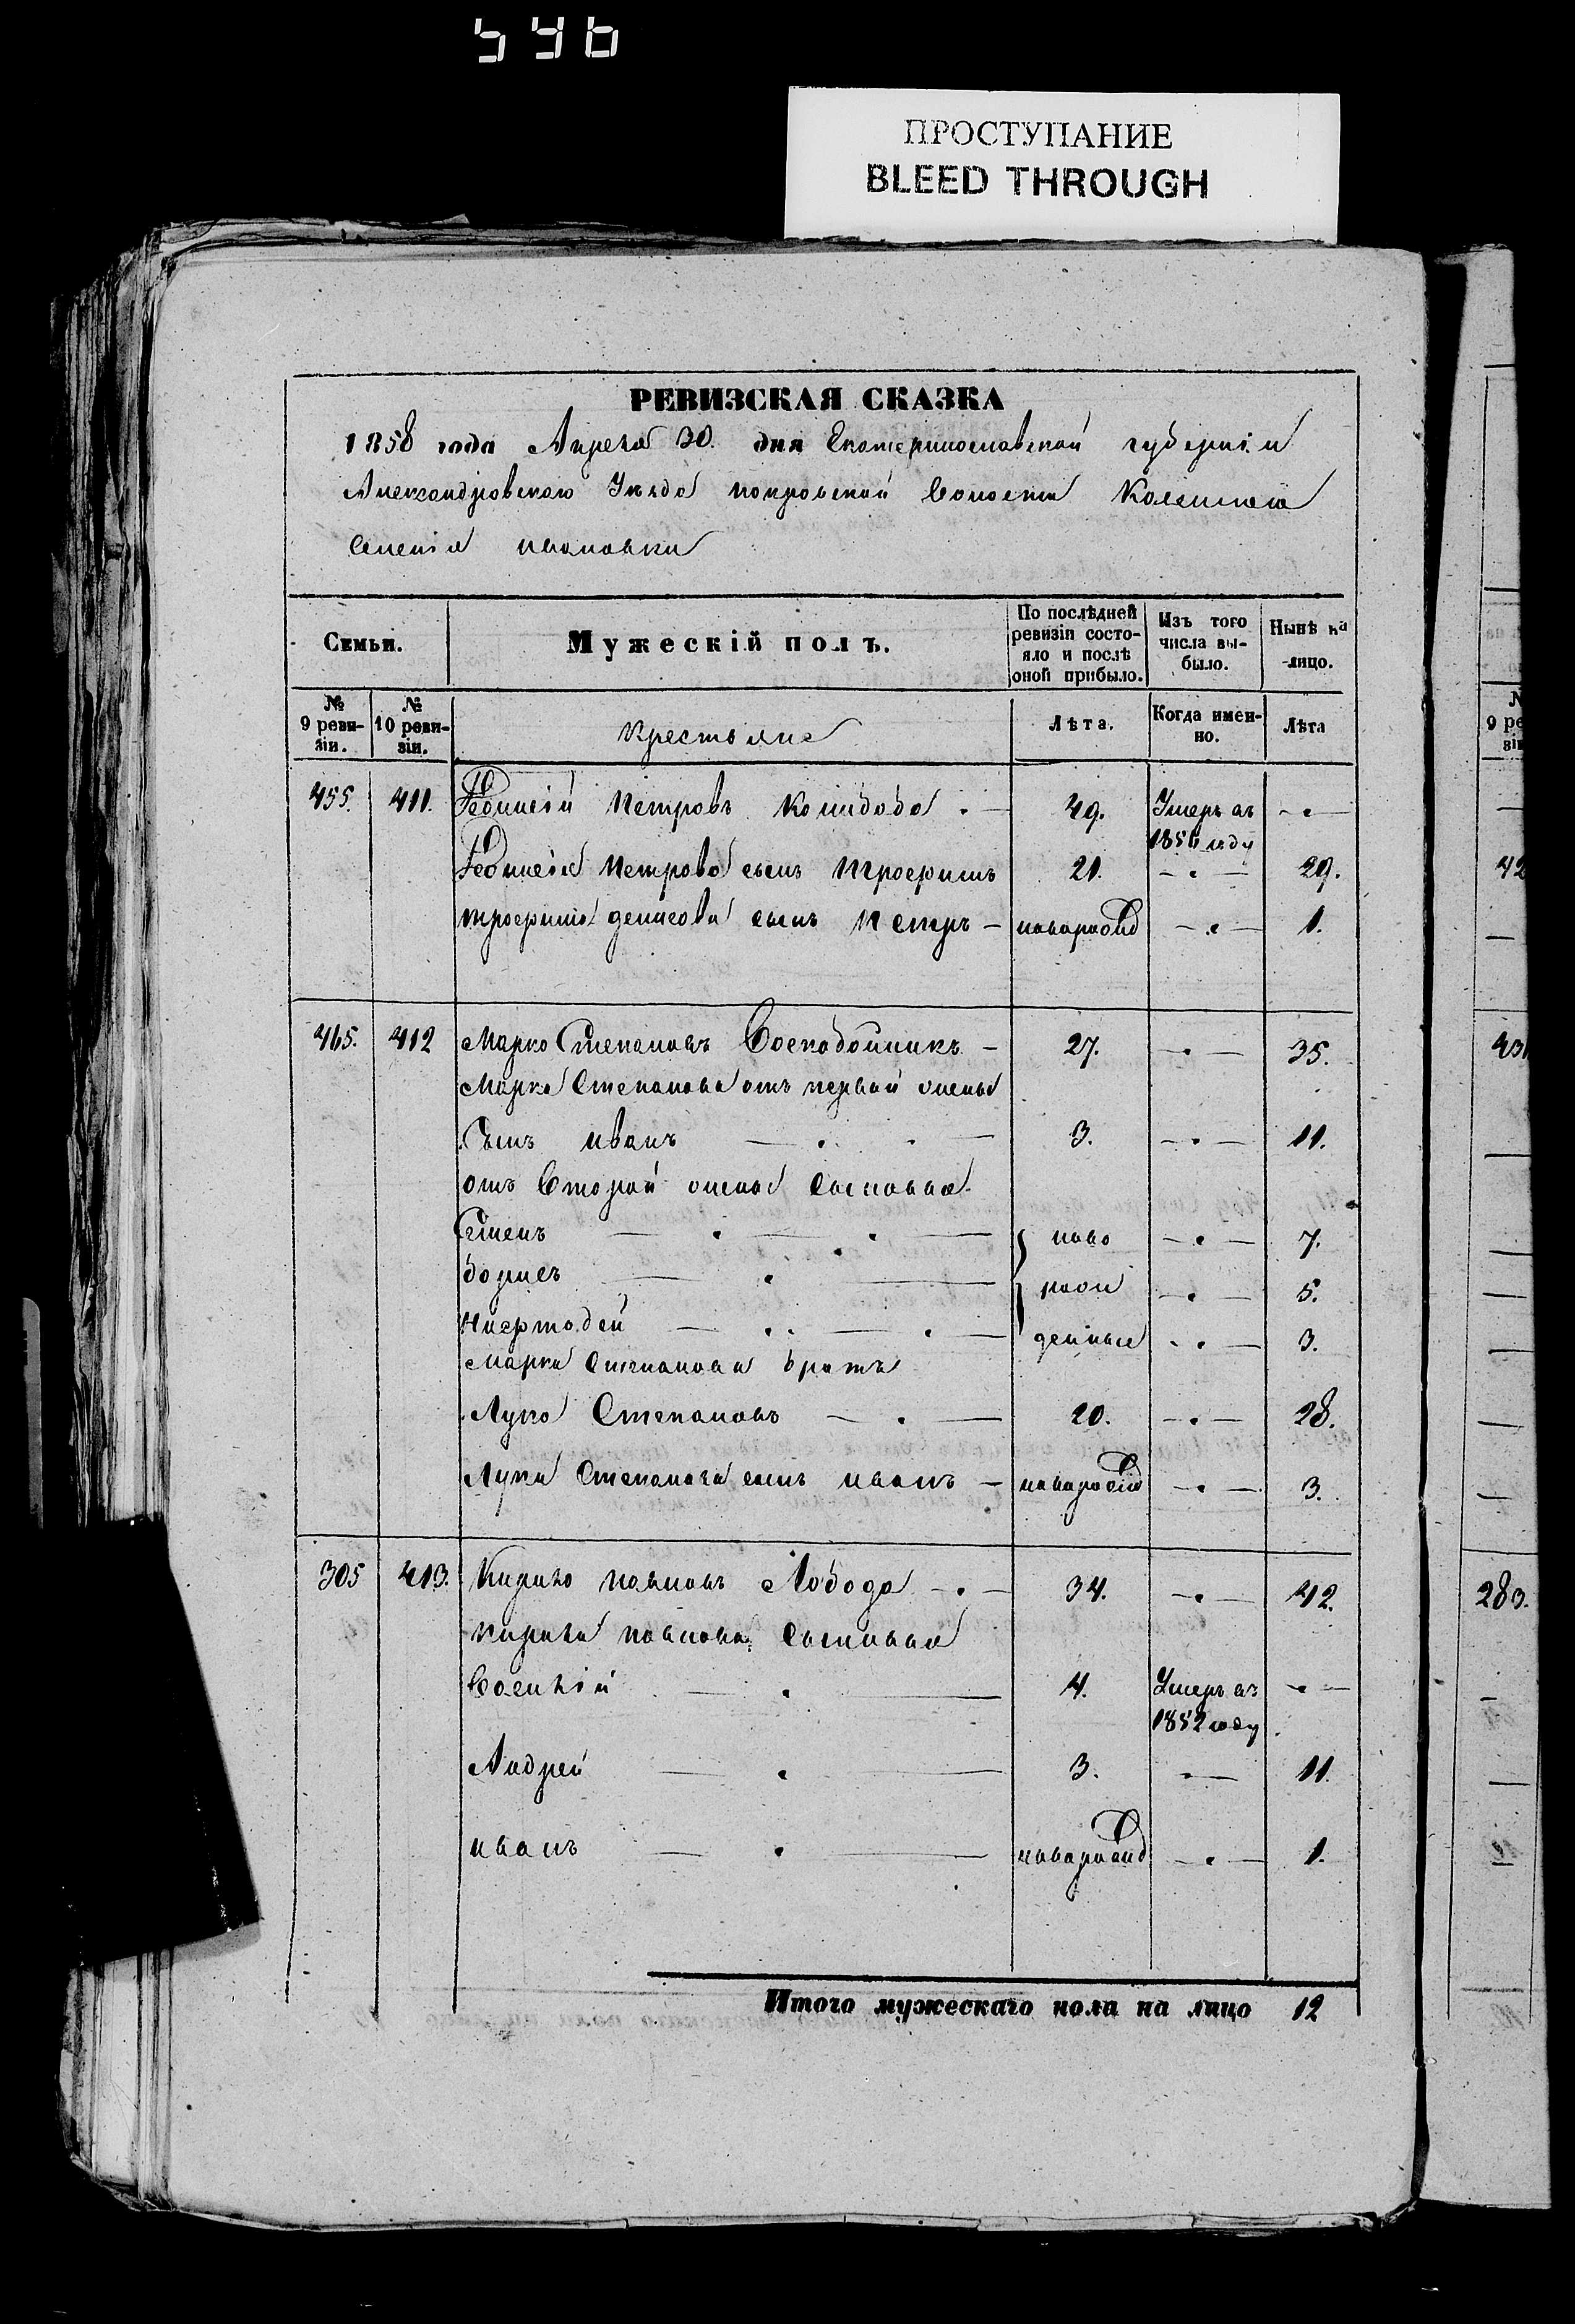 546
ПРОСТУПАНИЕ
BLEED THROUGH
РЕВИЗСКАЯ СКАЗКА
1858 года Апреля 30. дня Екатеринославской губернiи
Александровского Уезда покровской Волости Казеннаго
Селенiя ивановки
Семьи.
Мужескiй полъ.
По послѣдней ревизiи состояло и послѣ оной прибыло.
Изъ того числа выбыло.
Нынѣ на лицо.
№ 9 ревизiи.
№ 10 ревизiи.
Крестьяне
Лѣта.
Когда именно.
Лѣта
455. 411. Петровъ 49. Умеръ въ 1856 году
Петрова сынъ Трофимъ 21. 29.
трофима денисова сынъ Петръ новорожд 1.
465. 412 Марко Степановъ Воскобойникъ 27. 35.
Марка Степанова отъ первой жены
Сынъ иванъ 3. 11.
отъ Второй жены Сыновья
ново 7.
борисъ рож 5.
денные 3.
Марка Степанова братъ
Лука Степановъ 20. 28.
Луки Степанова сынъ иванъ новорожд 3.
305 413. Кирило павловъ Лобода 34. 42.
кирила павлова Сыновья
Василiй 4. Умеръ въ 1852 году
Андрей 3. 11.
иванъ новорожд 1.
Итого мужескаго пола на лицо 12
№
9 ре
зiи
42
43
283.